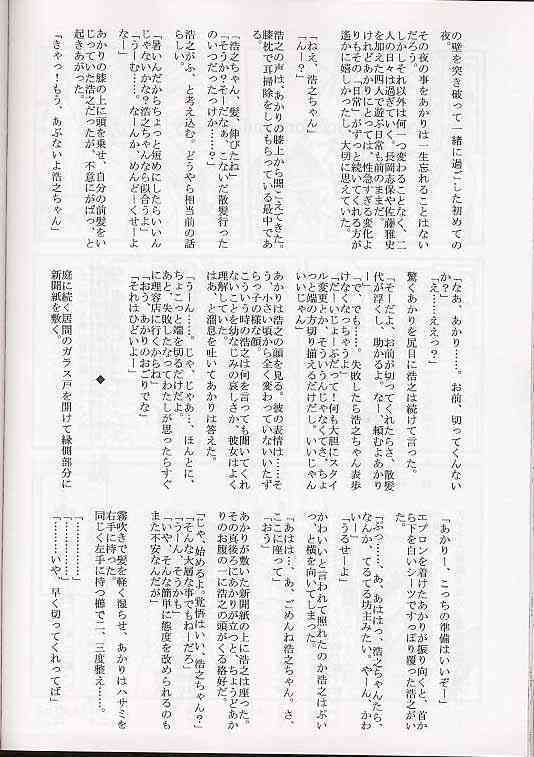 の壁を突き破って一緒に過ごした初めての
夜。
その夜の事をあかりは一生忘れることはない
だろう。
しかしそれ以外は何一つ変わることなく、二
人の日々は過ぎていく。長岡志保や佐藤雅史
を加えた四人で遊ぶ日常も前のままだ。
けれどあかりにとっては、性急すぎる変化よ
りもその「日常」がずっと続いてくれる方が
遙かに嬉しかったし、大切に思えていた。
「ねぇ、浩之ちゃん」
「んー？」
浩之の声は、あかりの膝上から聞こえてきた。
膝枕で耳掃除をしてもらっている最中であ
る。
「浩之ちゃん、髪、伸びたね」
「そうか？そーだなぁ、こないだ散髪行った
のいつだったっけか……？」
浩之がふ、と考え込む。どうやら相当前の話
らしい。
「暑いんだからちょっと短めにしたらいいん
じゃないかな？浩之ちゃんなら似合うよ」
「うーむ……。なーんか、めんどーくせーよ
なー」
あかりの膝の上に頭を乗せ、自分の前髪をい
じっていた浩之だったが、不意にがばっ、と
起きあがった。
「きゃっ！もう、あぶないよ浩之ちゃん」
「なあ、あかり……。お前、切ってくんない
か？」
「え……えっ？」
「そーだよ、お前が切ってくれたらさ、散髪
代が浮くし、助かるよ。なー、頼むよあかり
驚くあかりを尻目に浩之は続けて言った。
「で、でも……。失敗したら浩之ちゃん表歩
けなくなっちゃうよ」
「だーいじょーぶだって！何も大胆にスタイ
ル変更とか、そういうんじゃなくてさ、ちょ
っと端の方切り揃えるだけだし。いいじゃん
いいじゃん」
あかりは浩之の顔を見る。彼の表情は……そ
う、小さい頃から全く変わっていないいたず
らっ子の様な顔。
こういう時の浩之は何を言っても聞いてくれ
ないことを幼なじみの哀しさか、彼女はよく
理解していた。
はあ、と溜息を吐いてあかりは答えた。
「うーん……。じゃ、じゃあ…、ほんとに、
ちょこっと端を切るだけだよ。
あと、失敗したなってわたしが思ったらすぐ
に理容店に行くからね」
「おう、あかりのおごりでな」
「それはひどいよー」
◆
庭に続く居間のガラス戸を開けて縁側部分に
新聞紙を敷く。
「あかりー、こっちの準備はいいぞー」
エプロンを着けたあかりが振り向くと、首か
ら下を白いシーツですっぽり覆った浩之がい
た。
「ぷっ……、あ、あははっ、浩之ちゃんたら、
なんか、てるてる坊主みたい。やーん、かわ
いー」
「うるせーよ」
かわいいと言われて照れたのか浩之はぷい
っ、と横を向いてしまった。
「あはは…。あ、ごめんね浩之ちゃん。さ、
ここに座って」
「おう」
あかりが敷いた新聞紙の上に浩之は座った。
その真後ろにあかりが立つと、ちょうどあか
りのお腹の一に浩之の頭がくる格好だ。
「じゃ、始めるよ。覚悟はいい、浩之ちゃん？」
「そんな大層な事でもねーだろ」
「うーん、そうかも」
「いや、そんな簡単に態度を改められるのも
また不安なんだが」
霧吹きで髪を軽く湿らせ、あかりはハサミを
右手に持った。
同じく左手に持つ櫛で二、三度整え……。
「……………」
「……………」
「……いや、早く切ってくれってば」